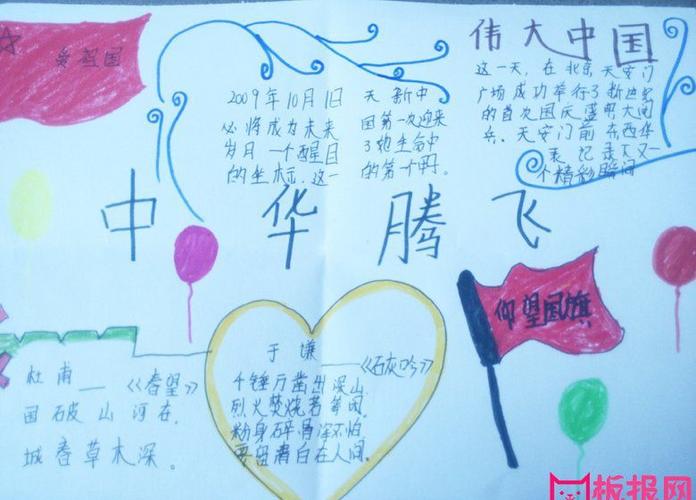 爱祖国
伟大中国
2009年10月1日
必将成为未来
岁月一个醒目
的坐标,这一
天新中
国第一次迎来
了她生命中
的第一个甲
这一天,在北京天安门
广场成功举行了新世纪
的首次国庆盛明大阅
兵。天安门前东西华
表记录下又一
个精彩瞬间
中华腾飞
仰望国旗
杜甫——《春望》
国破山河在,
城春草木深。
于谦——《石灰吟》
千锤万凿出深山
烈火焚烧若等闲,
粉身碎骨浑不怕
要留清白在人间,
板报网